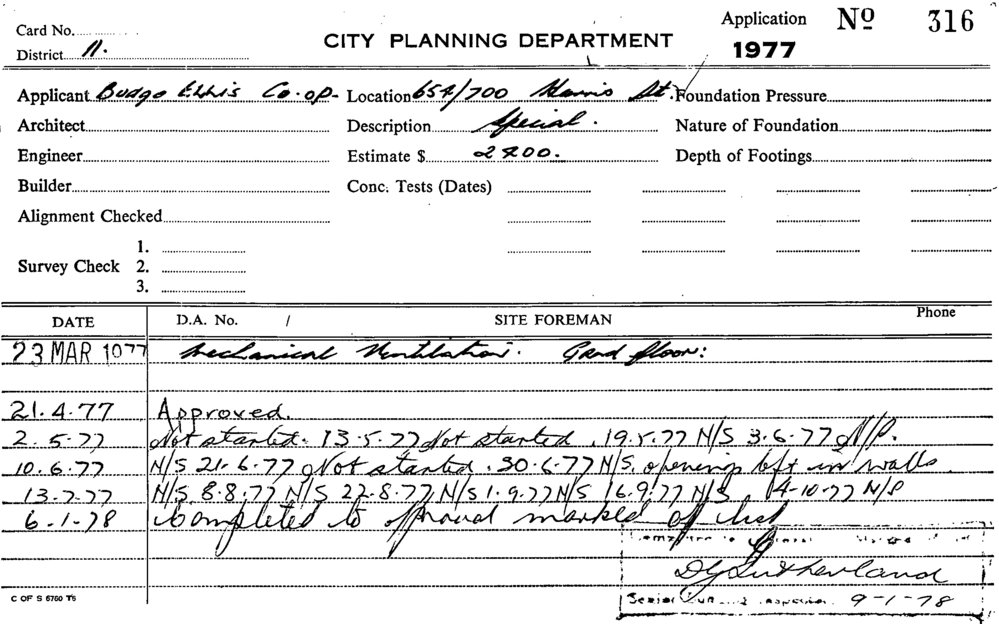 Card No.
District 11.
CITY PLANNING DEPARTMENT
Application Nº 316
1977
Applicant Budge Ellis Co-op. Location 654/700 Harris St. Foundation Pressure
Architect Description Special. Nature of Foundation
Engineer Estimate $ 2400. Depth of Footings
Builder Conc. Tests (Dates)
Alignment Checked
1.
Survey Check 2.
3.
DATE D.A. No. / SITE FOREMAN Phone
23 MAR 1977 Mechanical Ventilation. Grnd floor:
21.4.77 Approved.
2.5.77 Not started. 13.5.77 Not started. 19.5.77 N/S 3.6.77 N/S.
10.6.77 N/S 21.6.77 Not started. 30.6.77 N/S. openings left in walls
13.7.77 N/S 8.8.77 N/S 22.8.77 N/S 1.9.77 N/S 16.9.77 N/S, 14-10-77 N/S
6.1.78 Completed to approval marked off list
D G Sutherland
Senior 9-1-78
C OF S 5760 T5